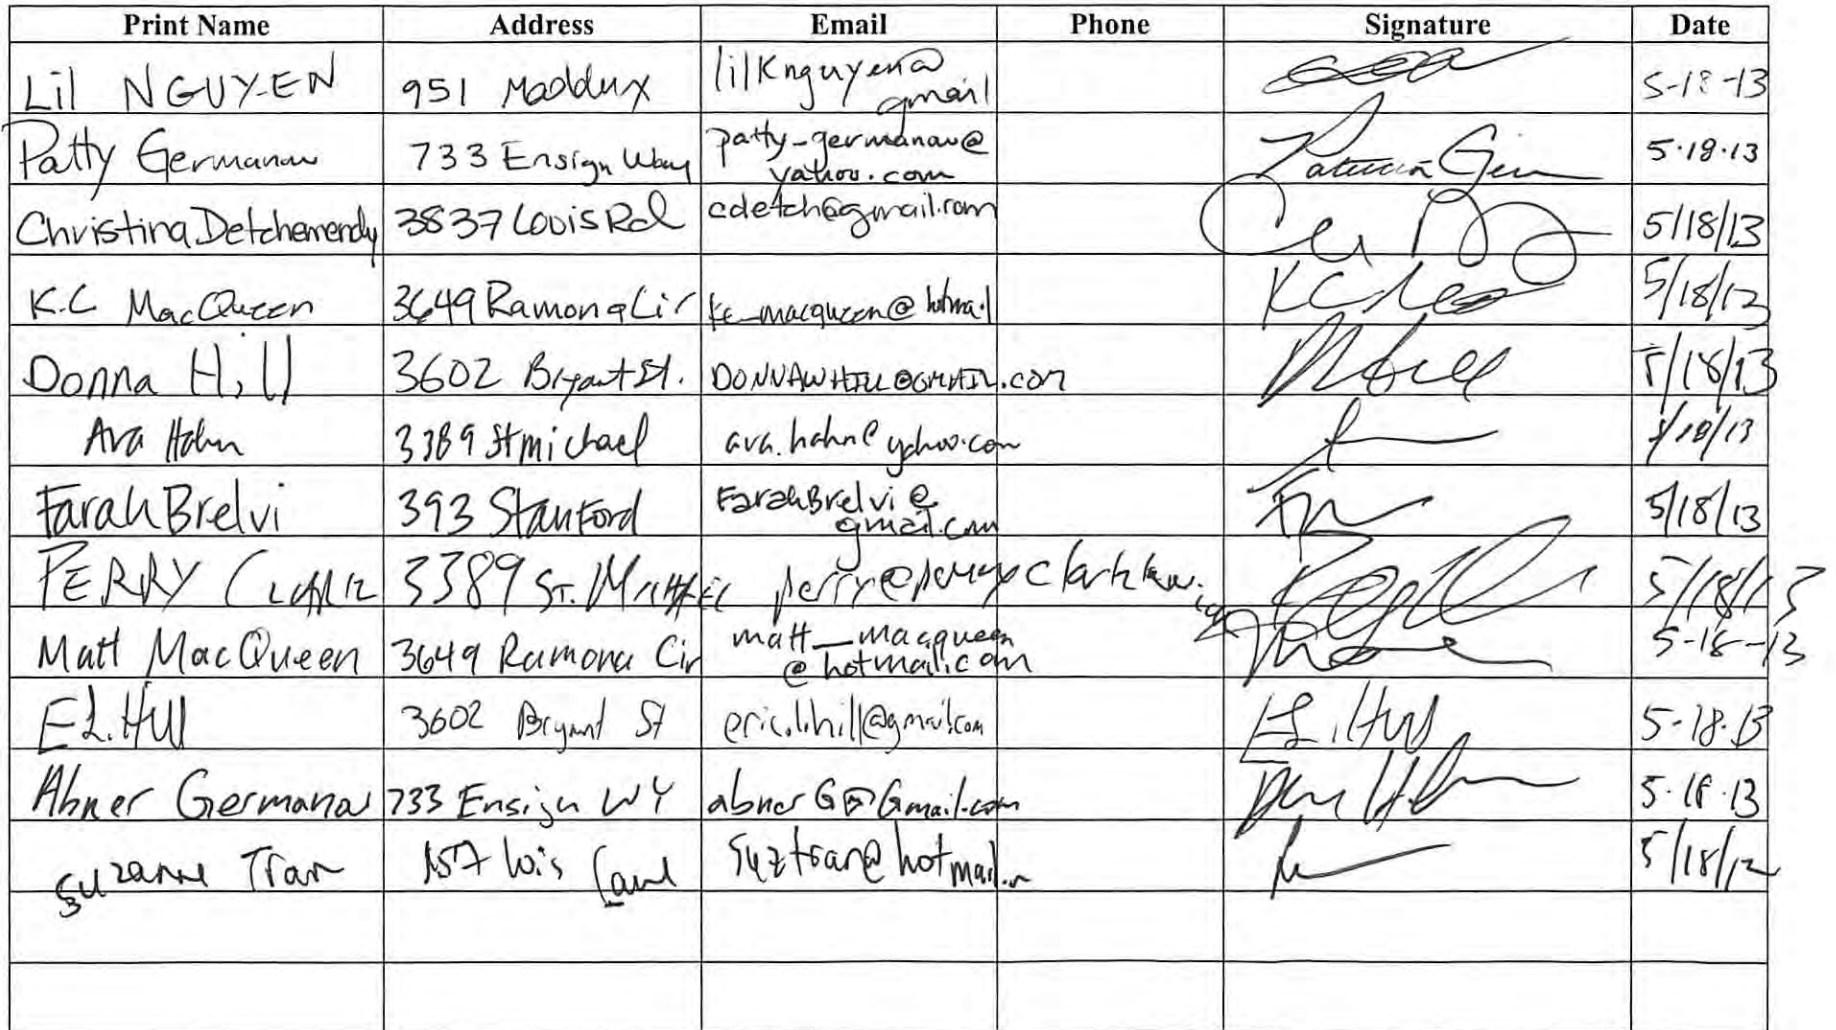 Print Name Address Email Phone Signature Date
Lil NGUYEN 951 Maddux lilKnguyen@ gmail 5-18-13
Patty Germanow 733 Ensign Way patty-germanow@ yahoo.com 5.18.13
Christina Detchemendy 3837 Louis Rd cdetch@gmail.com 5/18/13
K.C MacQueen 3649 Ramona Cir kc_macqueen@hotmail 5/18/13
Donna Hill 3602 Bryant St. DONNAWHILL@GMAIL.COM 5/18/13
Ava Hahn 3389 St Michael ava.hahn@yahoo.com 5/18/13
Farah Brelvi 393 Stanford FarahBrelvi@ gmail.com 5/18/13
PERRY CLARK 3389 ST. 5/18/13
Matt MacQueen 3649 Ramona Cir matt_macqueen @hotmail.com 5-18-13
E.L. Hill 3602 Bryant St eric.l.hill@gmail.com E.L. Hill 5-18.13
Abner Germanow 733 Ensign WY abnerG@Gmail.com 5.18.13
Suzanne Tran suztran@hotmail. 5/18/12